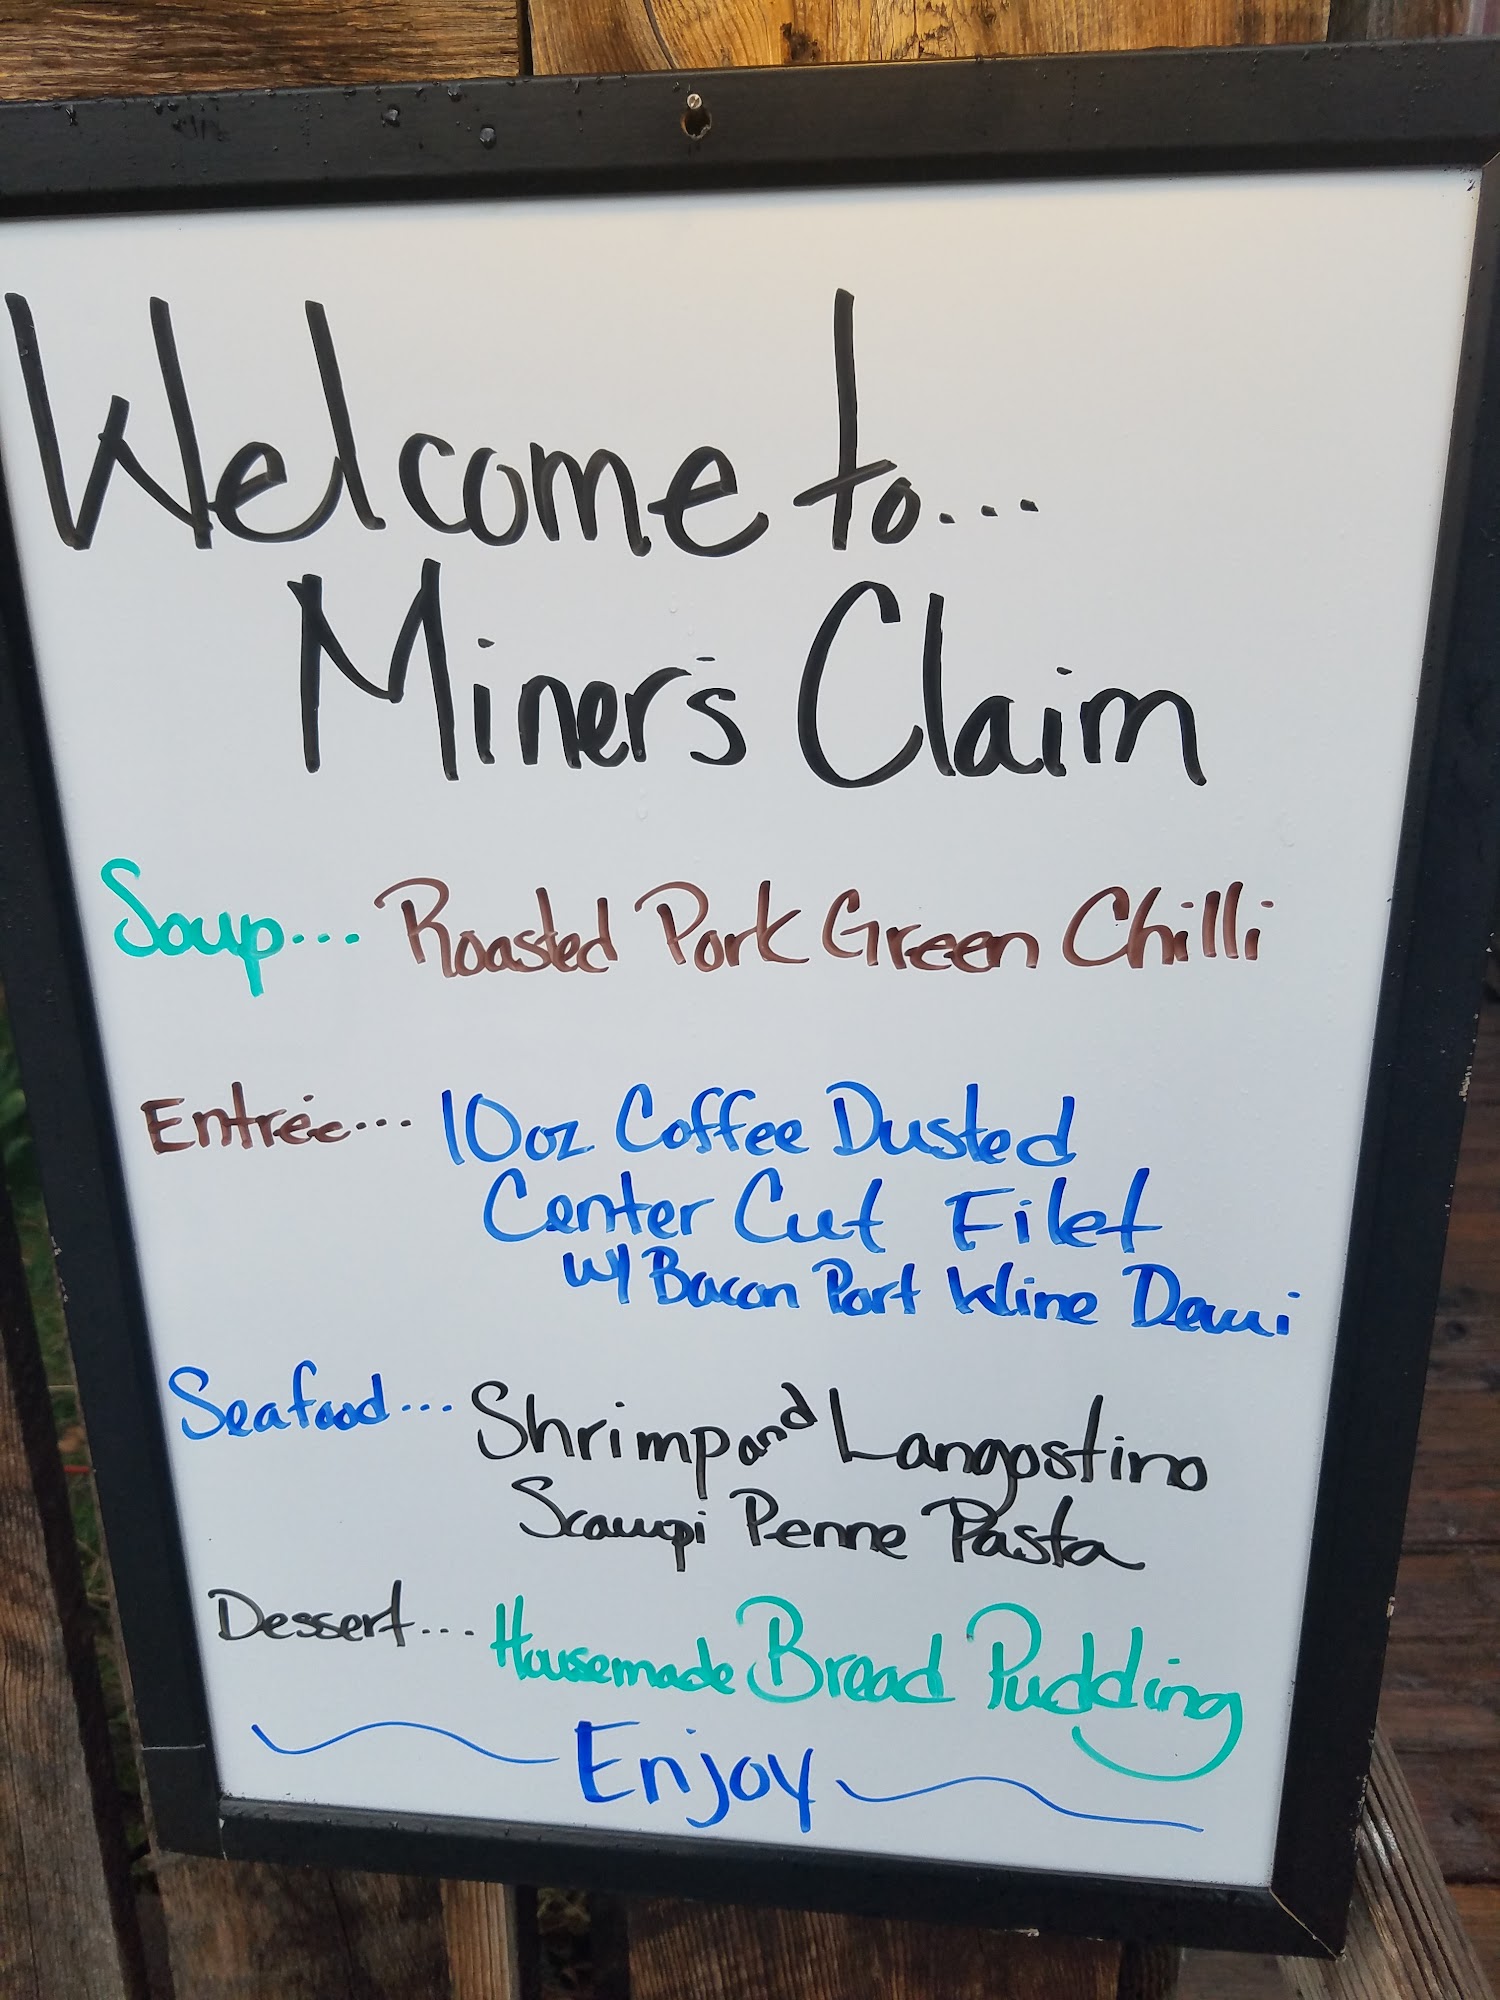 Welcome to...
Miner's Claim
Soup... Roasted Pork Green Chilli
Entrée... 10oz Coffee Dusted
Center Cut Filet
w/ Bacon Port Wine Demi
Seafood... Shrimp and Langostino
Scampi Penne Pasta
Dessert... Housemade Bread Pudding
Enjoy